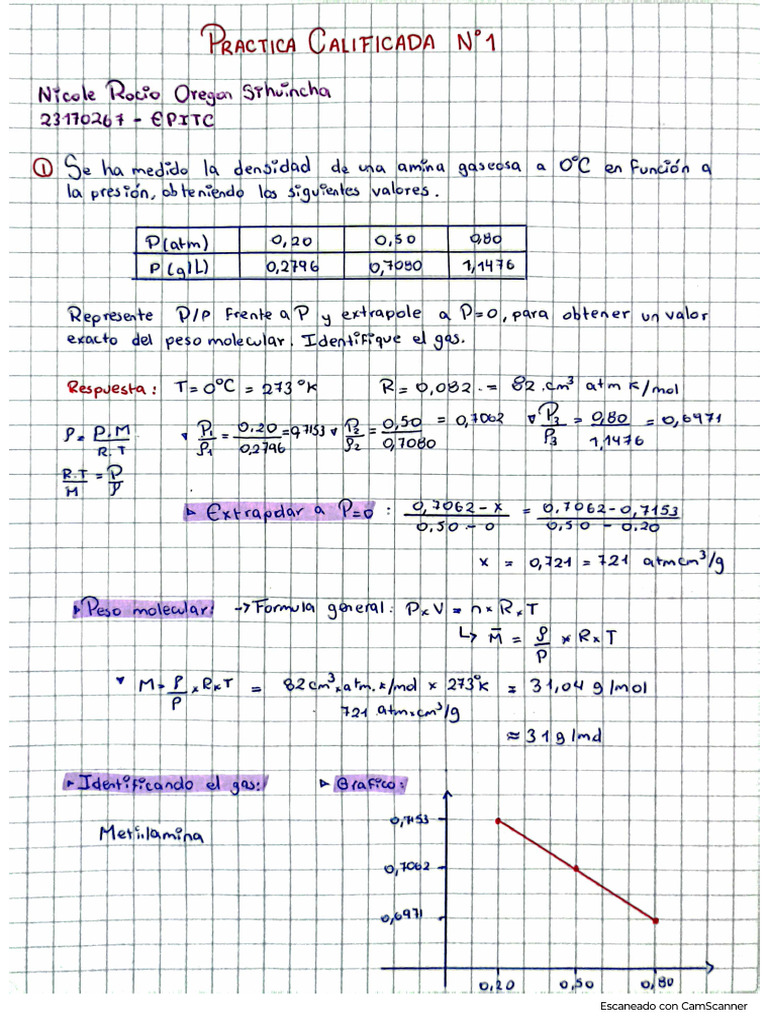 PRACTICA CALIFICADA N°1
Nicole Rocio Oregon Sihuincha
23170267 - EPITC
① Se ha medido la densidad de una amina gaseosa a 0°C en función a
la presión, obteniendo los siguientes valores.
P(atm) 0,20 0,50 0,80
ρ(g/L) 0,2796 0,7080 1,1476
Represente P/ρ frente a P y extrapole a P=0, para obtener un valor
exacto del peso molecular. Identifique el gas.
Respuesta: T=0°C = 273°K R=0,082 = 82.cm³ atm K/mol
ρ = P.M / R.T P₁/ρ₁ = 0.20/0.2796 = 0,7153 P₂/ρ₂ = 0,50/0,7080 = 0,7062 P₃/ρ₃ = 0,80/1,1476 = 0,6971
R.T/M = P/ρ
▸ Extrapolar a P=0: 0,7062-x / 0,50-0 = 0,7062-0,7153 / 0,50-0.20
x = 0,721 = 721 atmcm³/g
▸ Peso molecular: → Formula general: PxV = nxRxT
↳ M̄ = ρ/P x RxT
M = ρ/P x RxT = 82cm³x atm.K/mol x 273°K / 721 atmxcm³/g = 31,04 g/mol
≈ 31g/mol
▸ Identificando el gas: ▸ Grafico:
Metilamina
0,7153
0,7062
0,6971
0,20 0,50 0,80
Escaneado con CamScanner